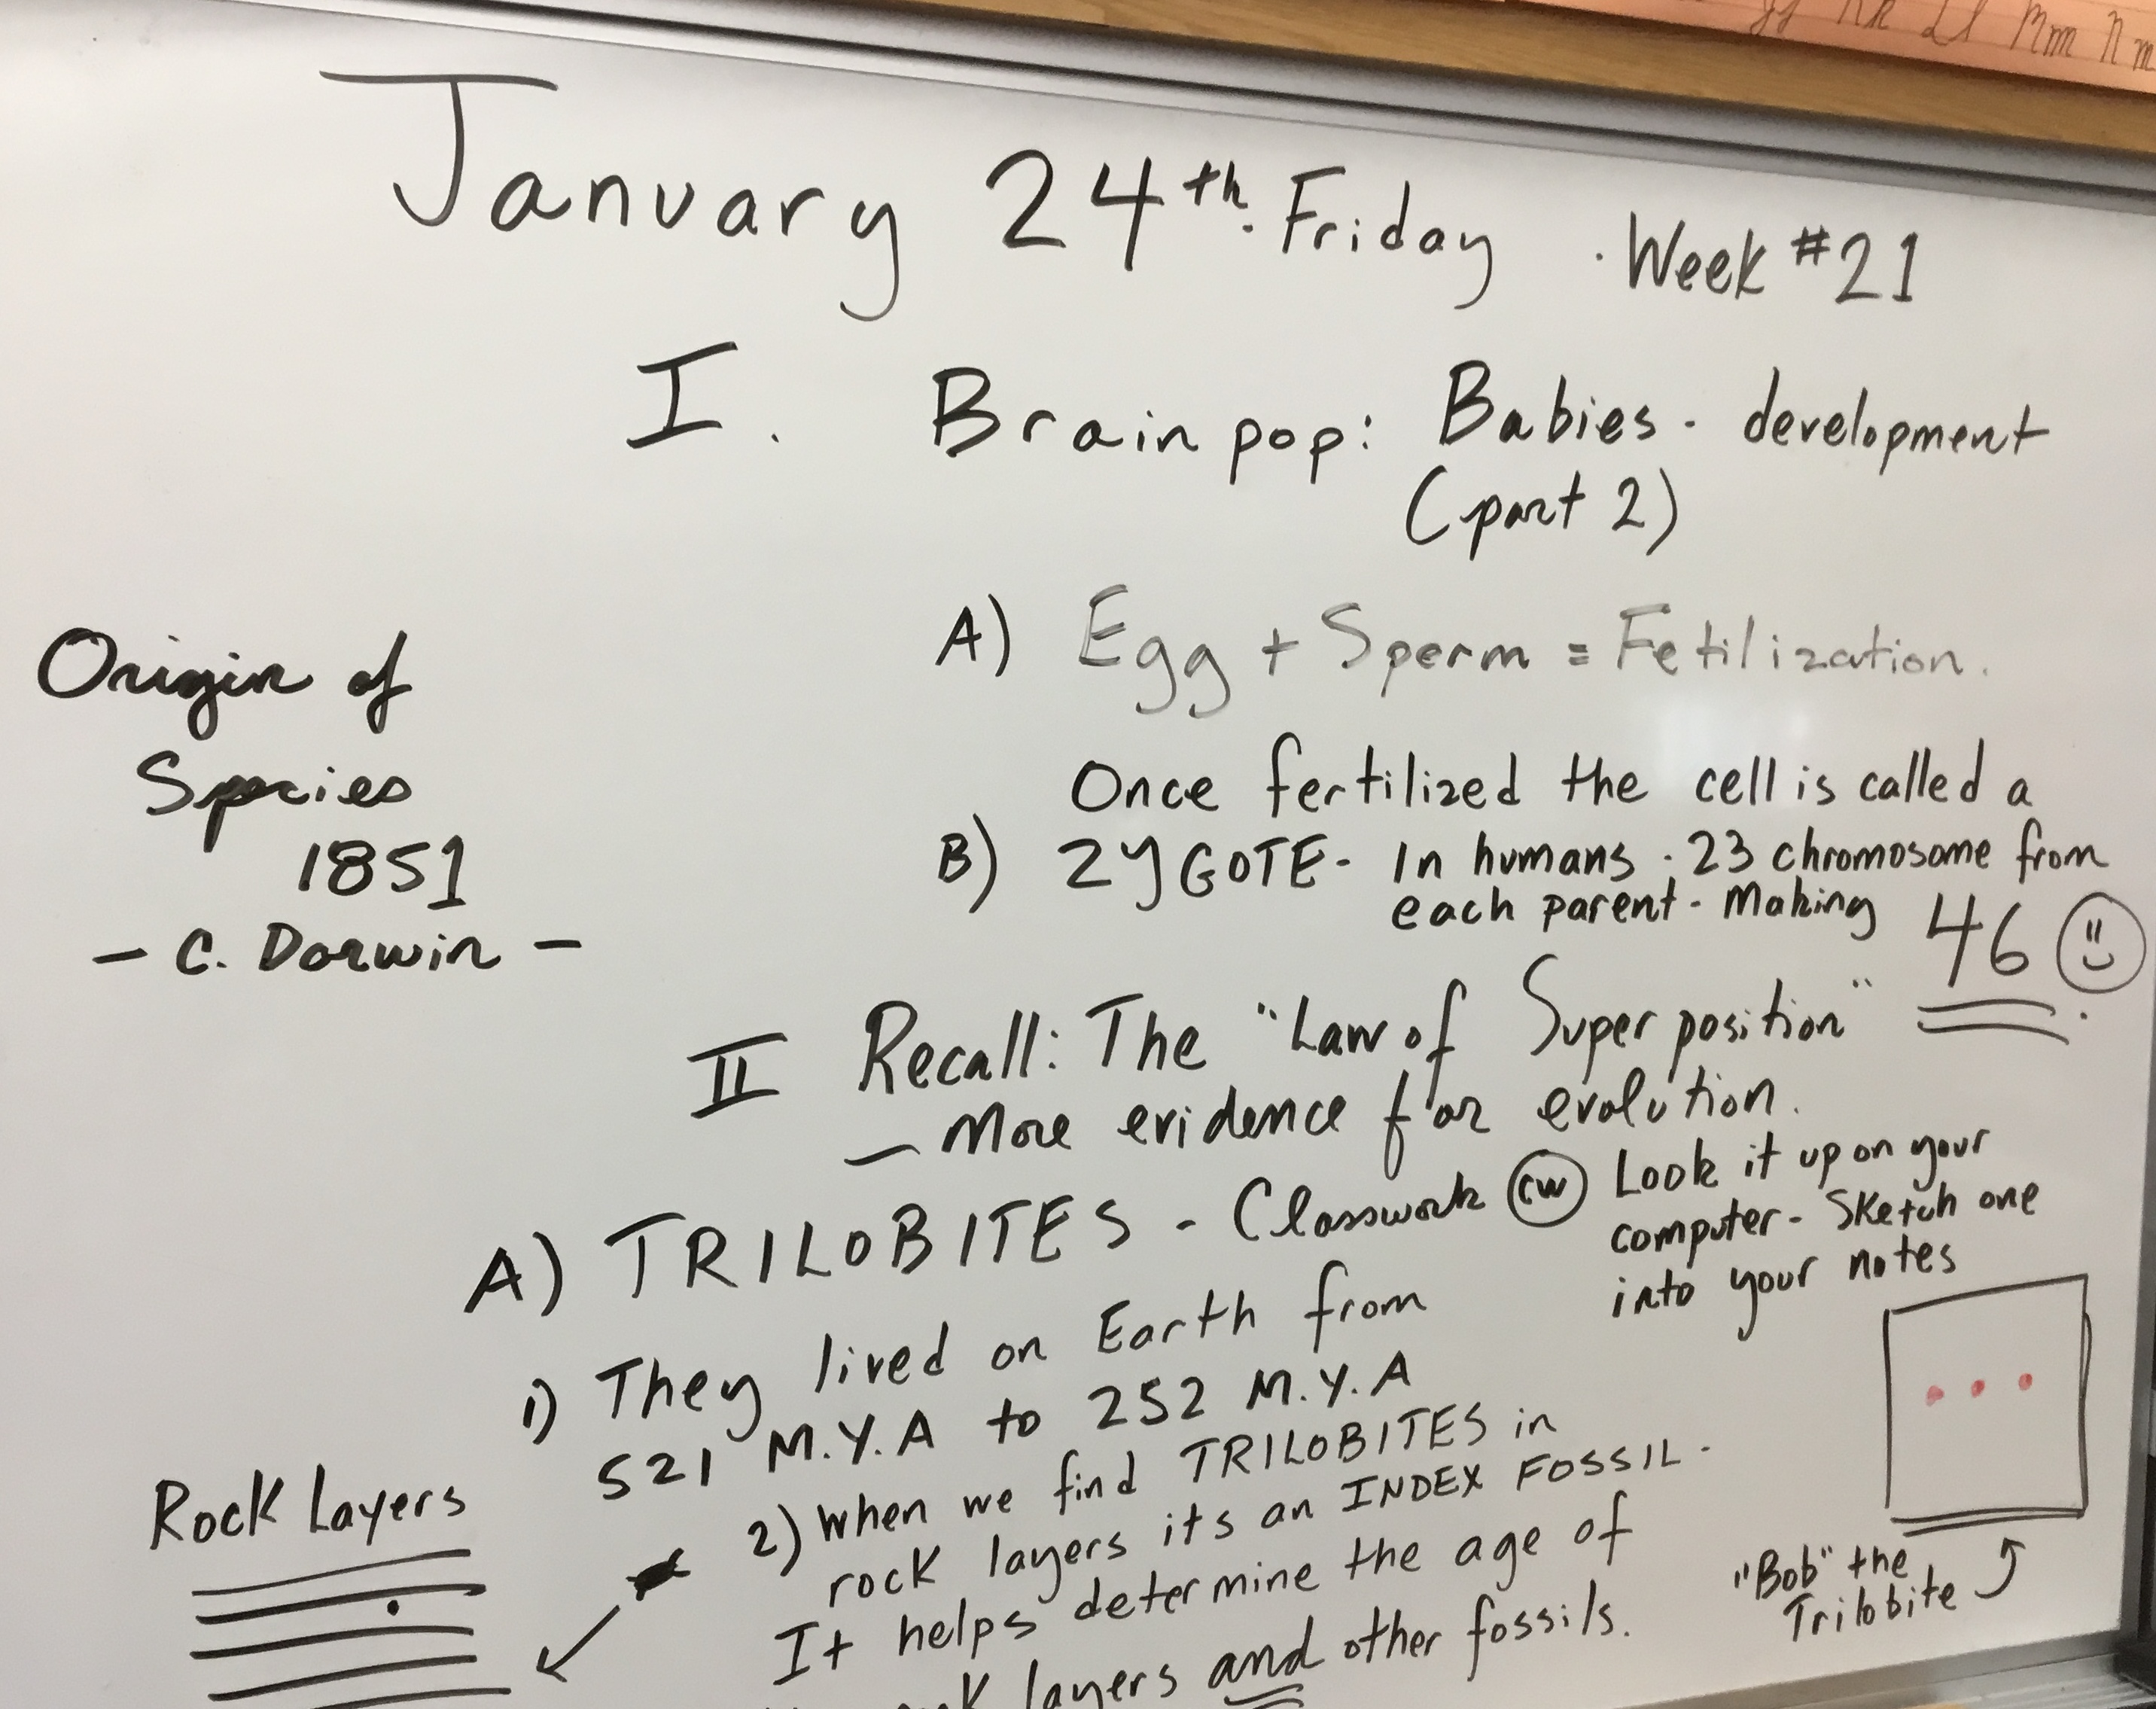 Kk Ll Mm Nn
January 24th. Friday . Week #21
I. Brainpop: Babies - development
(part 2)
A) Egg + Sperm = Fetilization.
Once fertilized the cell is called a
B) ZYGOTE - In humans . 23 chromosome from
each parent - Making 46
Origin of
Species
1851
- C. Darwin -
II Recall: The "Law of Superposition"
- More evidence for evolution.
A) TRILOBITES - Classwork CW Look it up on your
computer - Sketch one
into your notes
1) They lived on Earth from
521 M.Y.A to 252 M.Y.A
2) When we find TRILOBITES in
rock layers its an INDEX FOSSIL.
It helps determine the age of
layers and other fossils.
"Bob" the
Trilobite
Rock Layers